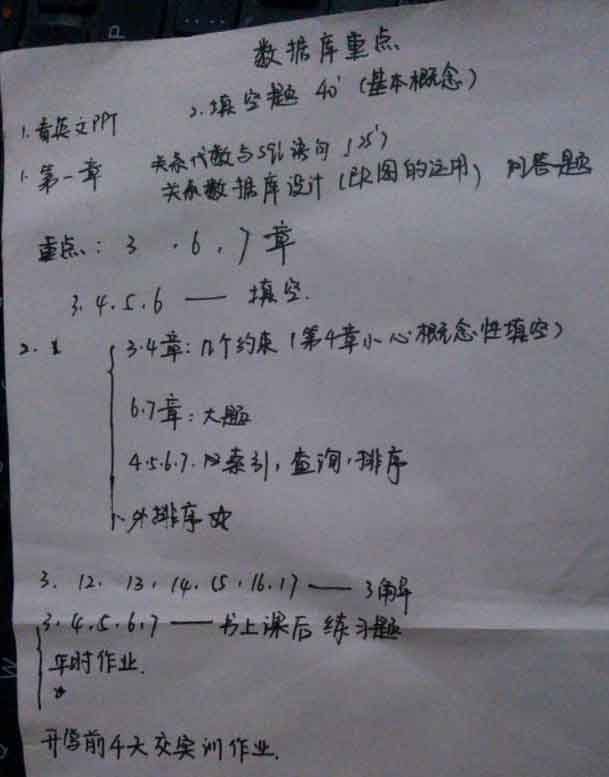 数据库重点
1. 看英文PPT 2. 填空题 40' (基本概念)
1. 第一章 关系代数与sql语句 (25')
关系数据库设计 (ER图的运用) 问答题
重点: 3 . 6 . 7 章
3. 4. 5. 6 —— 填空.
2.
3.4章: 几个约束 (第4章小心概念性填空)
6.7章: 大题
4.5.6.7. 索引, 查询, 排序
外排序
3. 12. 13. 14. 15. 16. 17 ——
3. 4. 5. 6. 7 —— 书上课后 练习题
平时作业.
前4天交实训作业.